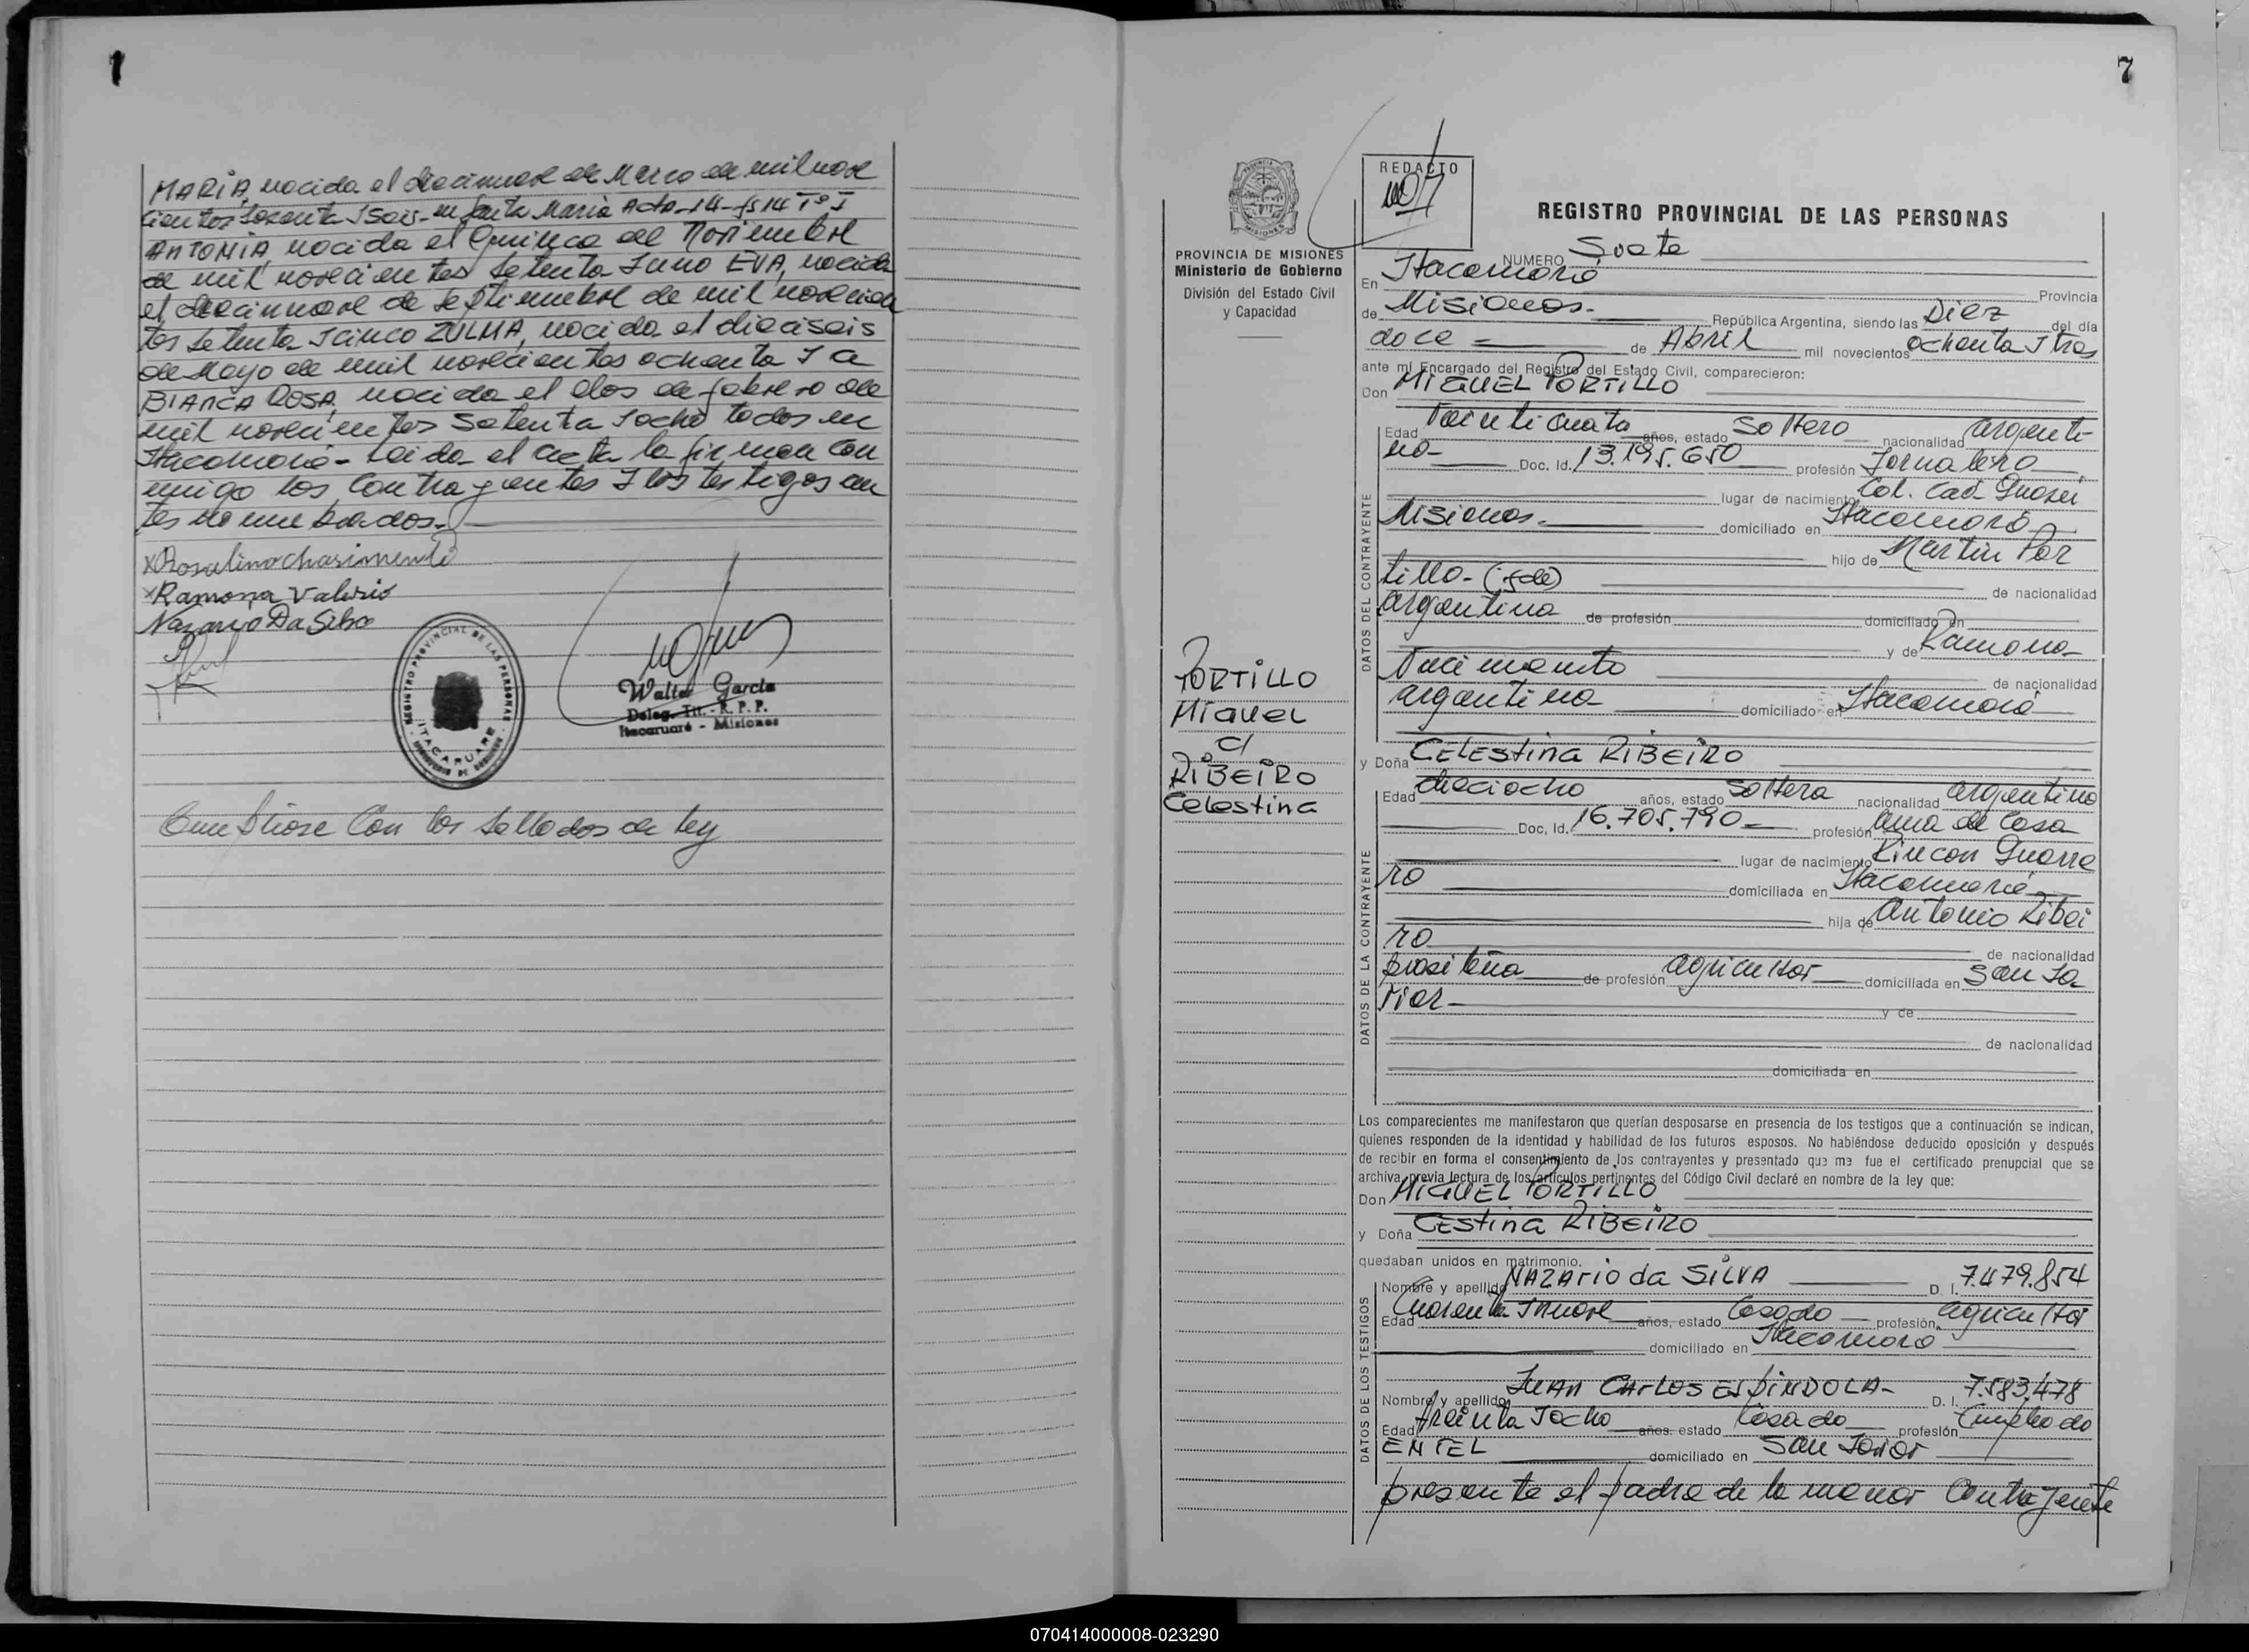 1
MARIA, nacida el diecinueve de Marzo de mil nove
cientos sesenta y seis - en Santa Maria Acta - 14 - fs 14 Tº I
ANTONIA, nacida el Quince de Noviembre
de mil novecientos setenta y uno EVA, nacida
el diecinueve de septiembre de mil novecien
tos setenta y cinco ZULMA, nacida el dieciseis
de Mayo de mil novecientos ochenta y a
BIANCA ROSA, nacida el dos de febrero de
mil novecientos setenta y ocho todos en
Itacaruaré - Leida el acta la firman con
migo los contrayentes y los testigos an
tes nombrados.
x Rosalino
x Ramona Valerio
Nazario Da Silva
REGISTRO PROVINCIAL DE LAS PERSONAS
ITACARUARE
Walter Garcia
Deleg. Tit. - R. P. P.
Itacaruaré - Misiones
Con los sellados de ley
7
PROVINCIA DE MISIONES
Ministerio de Gobierno
División del Estado Civil
y Capacidad
PORTILLO
Miguel
c/
RIBEIRO
Celestina
REDACTO
REGISTRO PROVINCIAL DE LAS PERSONAS
NUMERO Siete
En Itacaruaré Provincia
de Misiones. República Argentina, siendo las Diez del día
doce de Abril mil novecientos ochenta y tres
ante mí Encargado del Registro del Estado Civil, comparecieron:
Don MIGUEL PORTILLO
Edad Veinticuatro años, estado Soltero nacionalidad argenti-
no- Doc. Id. 13.195.650 profesión Jornalero
lugar de nacimiento Col.
Misiones. domiciliado en Itacaruaré
hijo de Martin Por
tillo - (fdo) de nacionalidad
argentina de profesión domiciliado en
y de Ramona
Nacimento de nacionalidad
argentina domiciliado en Itacaruaré
y Doña CELESTINA RIBEIRO
Edad dieciocho años, estado Soltera nacionalidad argentina
Doc. Id. 16.705.790 profesión ama de casa
lugar de nacimiento Rincon Guerre
ro domiciliada en Itacaruaré
hija de Antonio Ribei
ro de nacionalidad
brasileña de profesión agricultor domiciliada en San Ja
vier y de
de nacionalidad
domiciliada en
Los comparecientes me manifestaron que querían desposarse en presencia de los testigos que a continuación se indican,
quienes responden de la identidad y habilidad de los futuros esposos. No habiéndose deducido oposición y después
de recibir en forma el consentimiento de los contrayentes y presentado que me fue el certificado prenupcial que se
archiva, previa lectura de los artículos pertinentes del Código Civil declaré en nombre de la ley que:
Don MIGUEL PORTILLO
y Doña CESTINA RIBEIRO
quedaban unidos en matrimonio.
Nombre y apellido NAZARIO da SILVA D. I. 7.479.854
Edad Cuarenta y nueve años, estado Casado profesión agricultor
domiciliado en Itacaruaré
Nombre y apellido JUAN CARLOS ESPINDOLA - D. I. 7.583.478
Edad treinta y ocho años. estado Casado profesión Empleado
ENTEL domiciliado en San Javier
presente el padre de la menor contrayente
DATOS DEL CONTRAYENTE
DATOS DE LA CONTRAYENTE
DATOS DE LOS TESTIGOS
070414000008-023290